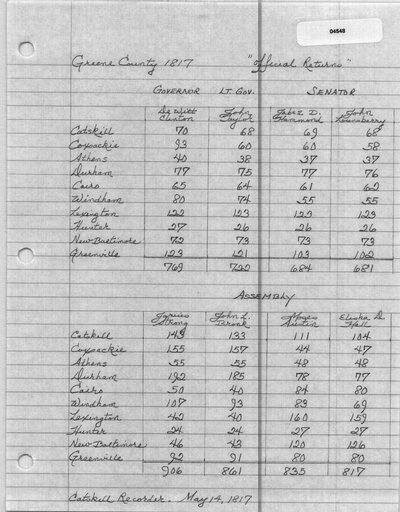 04548
Greene County 1817 "Official Returns"
GOVERNOR LT. GOV. SENATOR
De Witt Clinton John Taylor Jabez D. Hammond John Lounsberry
Catskill 70 68 69 68
Coxsackie 93 60 60 58
Athens 40 38 37 37
Durham 77 75 77 76
Cairo 65 64 61 62
Windham 80 74 55 55
Lexington 122 123 123 123
Hunter 27 26 26 26
New Baltimore 72 73 73 73
Greenville 123 121 103 102
769 722 684 681
ASSEMBLY
Strong John L. Bronk Moses Austin Elisha D. Hall
Catskill 143 133 111 104
Coxsackie 155 157 44 47
Athens 55 55 48 48
Durham 192 185 78 77
Cairo 50 40 84 80
Windham 107 93 83 69
Lexington 42 40 160 159
Hunter 24 24 27 27
New Baltimore 46 43 120 126
Greenville 92 91 80 80
906 861 835 817
Catskill Recorder. May 14, 1817